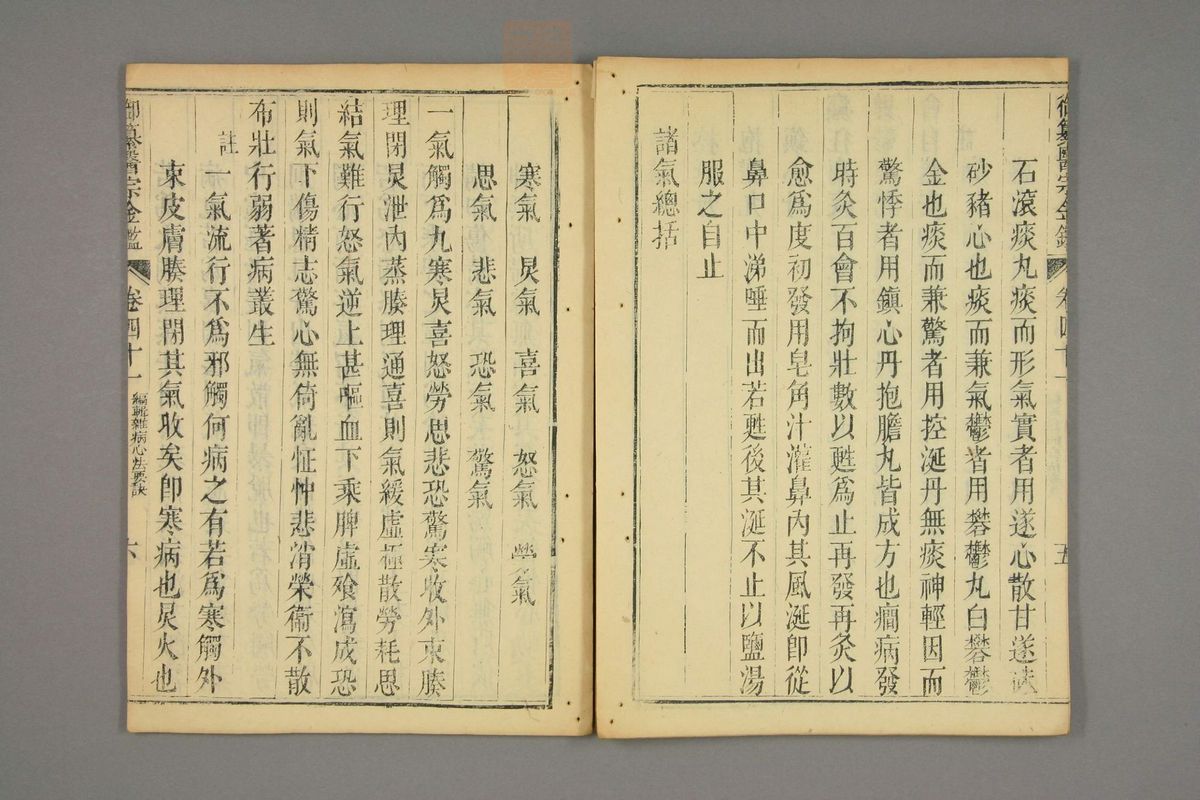 御纂醫宗金鑑 卷四十一 五
石滾痰丸痰而形氣實者用遂心散甘遂硃
砂豬心也痰而兼氣鬱者用礬鬱丸白礬鬱
金也痰而兼驚者用控涎丹無痰神輕因而
驚悸者用鎮心丹抱膽丸皆成方也癎病發
時灸百會不拘壯數以甦為止再發再灸以
愈為度初發用皂角汁灌鼻內其風涎卽從
鼻口中涕唾而出若甦後其涎不止以鹽湯
服之自止
諸氣總括
寒氣 炅氣 喜氣 怒氣 勞氣
思氣 悲氣 恐氣 驚氣
一氣觸爲九寒炅喜怒勞思悲恐驚寒收外束腠
理閉炅泄內蒸腠理通喜則氣緩虛極散勞耗思
結氣難行怒氣逆上甚嘔血下乘脾虛飱瀉成恐
則氣下傷精志驚心無倚亂怔忡悲消榮衞不散
布壯行弱著病叢生
註
一氣流行不爲邪觸何病之有若爲寒觸外
束皮膚腠理閉其氣收矣卽寒病也炅火也
御纂醫宗金鑑 卷四十一 編輯雜病心法要訣 六